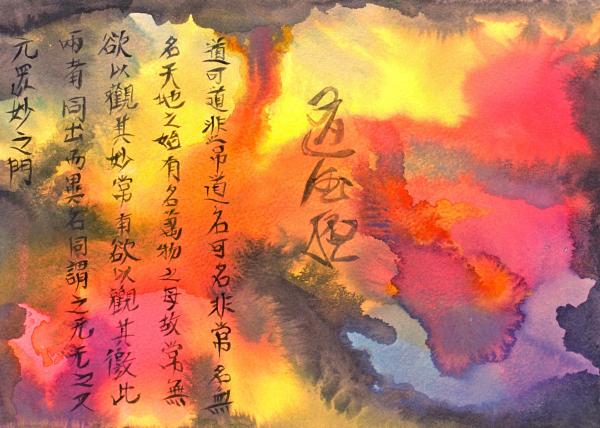 道德經
道可道非常道名可名非常名無
名天地之始有名萬物之母故常無
欲以觀其妙常有欲以觀其徼此
兩者同出而異名同謂之元元之又
元眾妙之門